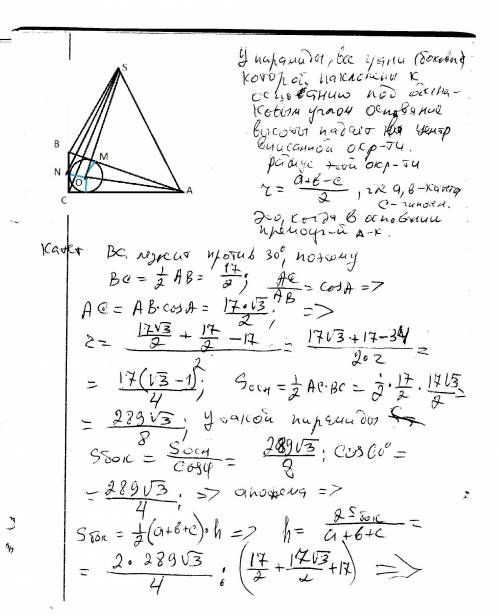 S
B
M
N
O
C
A
У пирамиды, все грани (боковые)
которой наклонены к
основанию под одина-
ковым углом основание
высоты падает на центр
вписанной окр-ти.
радиус этой окр-ти
r = (a+b-c)/2, где a, b - катеты
c - гипотен.
Это, когда в основании
прямоуг-й Δ-к.
Катет BC лежит против 30°, поэтому
BC = 1/2 AB = 17/2; AC/AB = cosA =>
AC = AB·cosA = 17·√3/2; =>
r = (17√3/2 + 17/2 - 17)/2 = (17√3 + 17 - 34)/(2·2) =
= 17(√3 - 1)/4; Sосн = 1/2 AC·BC = 1/2 · 17/2 · 17√3/2 =
= 289√3/8; У такой пирамиды
Sбок = Sосн/cosφ = 289√3/8 : cos60° =
= 289√3/4; => апофема =>
Sбок = 1/2(a+b+c)·h => h = 2Sбок/(a+b+c) =
= 2·289√3/4 : (17/2 + 17√3/2 + 17) =>